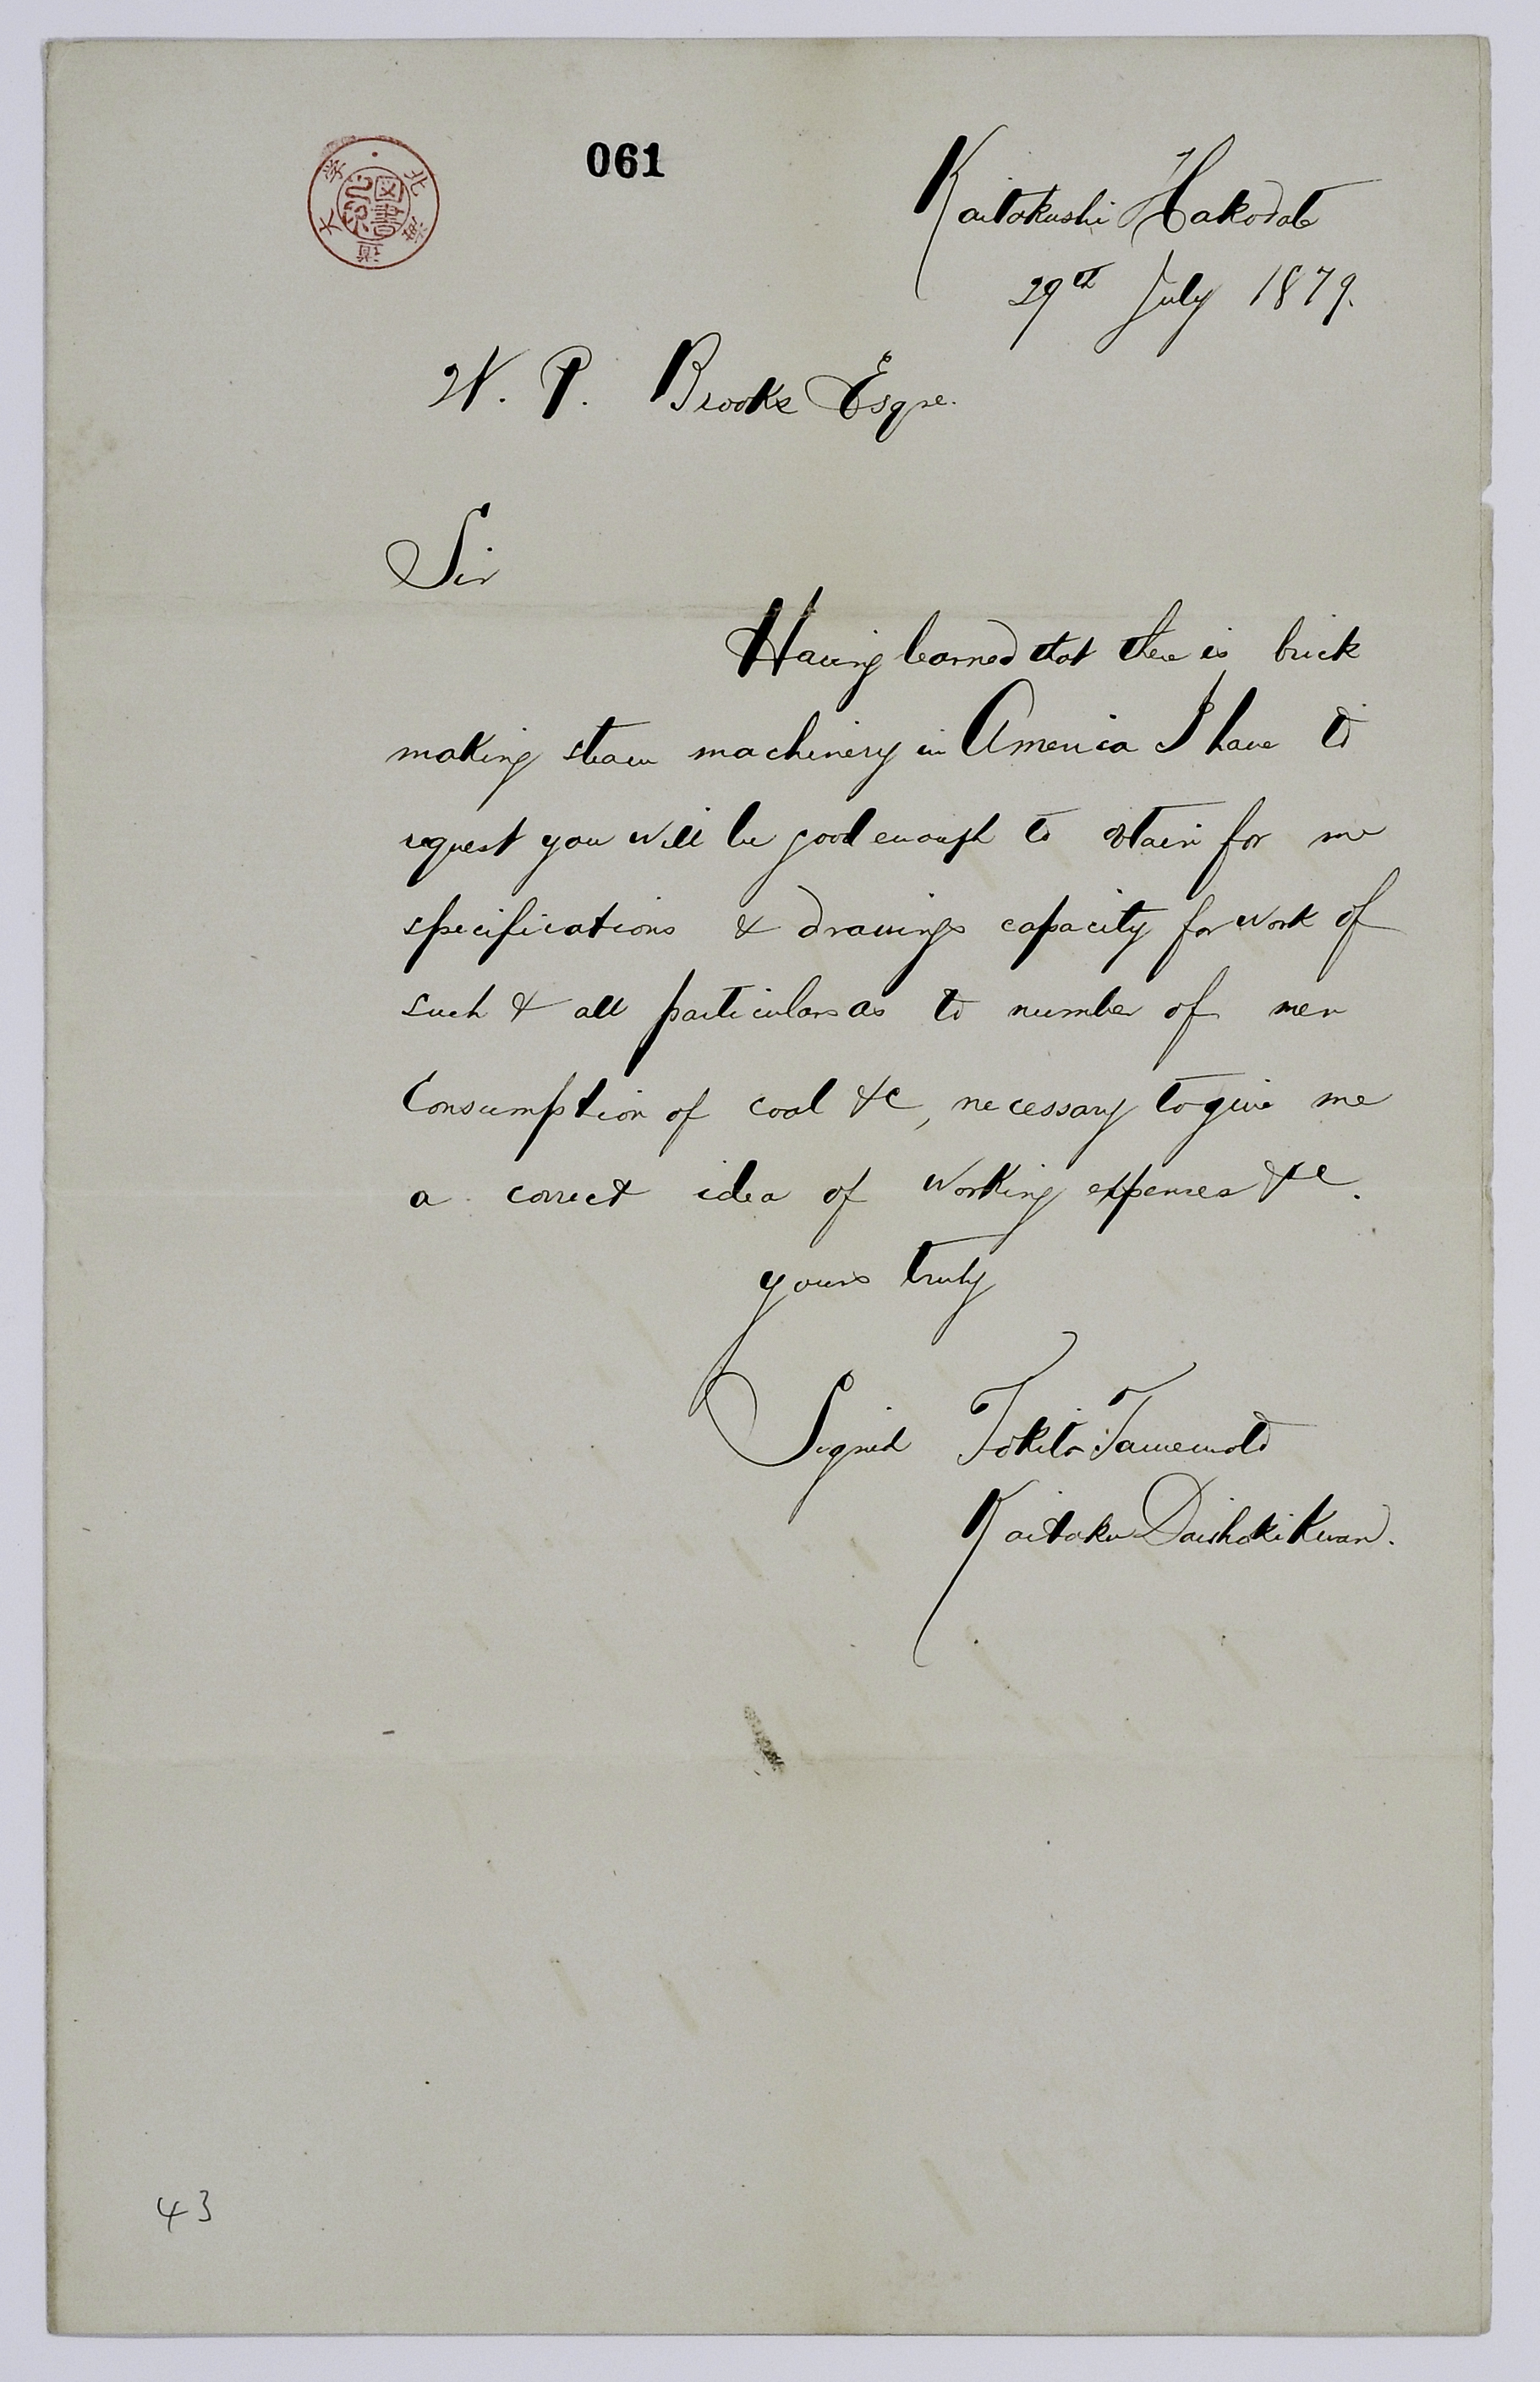 北海道大学
図書之印
061
Kaitakushi Hakodate
29th July 1879.
W. P. Brooks Esqre.
Sir
Having learned that there is brick
making steam machinery in America I have to
request you will be good enough to obtain for me
specifications & drawings capacity for work of
such & all particulars as to number of men
Consumption of coal &c, necessary to give me
a correct idea of working expenses &c.
yours truly
Signed Tokito Tamemoto
Kaitaku Daishokikwan.
43